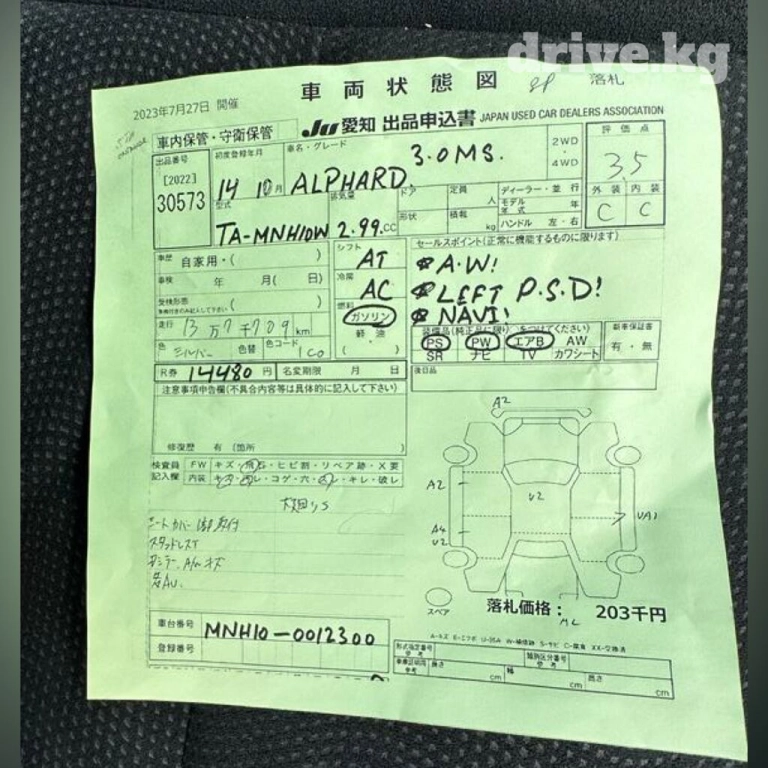 drive.kg
車両状態図
落札
2023年7月27日 開催
車内保管・守衛保管
JU 愛知 出品申込書 JAPAN USED CAR DEALERS ASSOCIATION
出品番号
[2022]
30573
初度登録年月
14 10月
車名・グレード
ALPHARD 3.0MS.
2WD
4WD
評価点
3.5
外装 内装
C C
型式
TA-MNH10W
排気量
2.99.CC
ドア
定員 人
形状
積載 kg
ディーラー・並行
モデル年式 年
ハンドル 左・右
車歴
自家用・( )
車検 年 月( 日)
受検形態 ( )
走行 13万7千709km
色 シルバー 色替 色コード 1C0
シフト
AT
冷房
AC
燃料
ガソリン
軽油
セールスポイント(正常に機能するものに限ります)
A.W!
LEFT P.S.D!
NAVI!
PS PW エアB AW
SR ナビ TV カワシート
新車保証書
有・無
後日品
R券 14480円 名変期限 月 日
注意事項申告欄(不具合内容等は具体的に記入して下さい)
修復歴 有 (箇所 )
検査員
記入欄
FW キズ・飛石・ヒビ割・リペア跡・X要
内装
スタッドレス
A2
A2
V2
A4
U2
UA1
スペア
落札価格: 203千円
車台番号 MNH10-0012300
登録番号
形式指定番号
類別区分番号
長さ cm
幅 cm
高さ cm